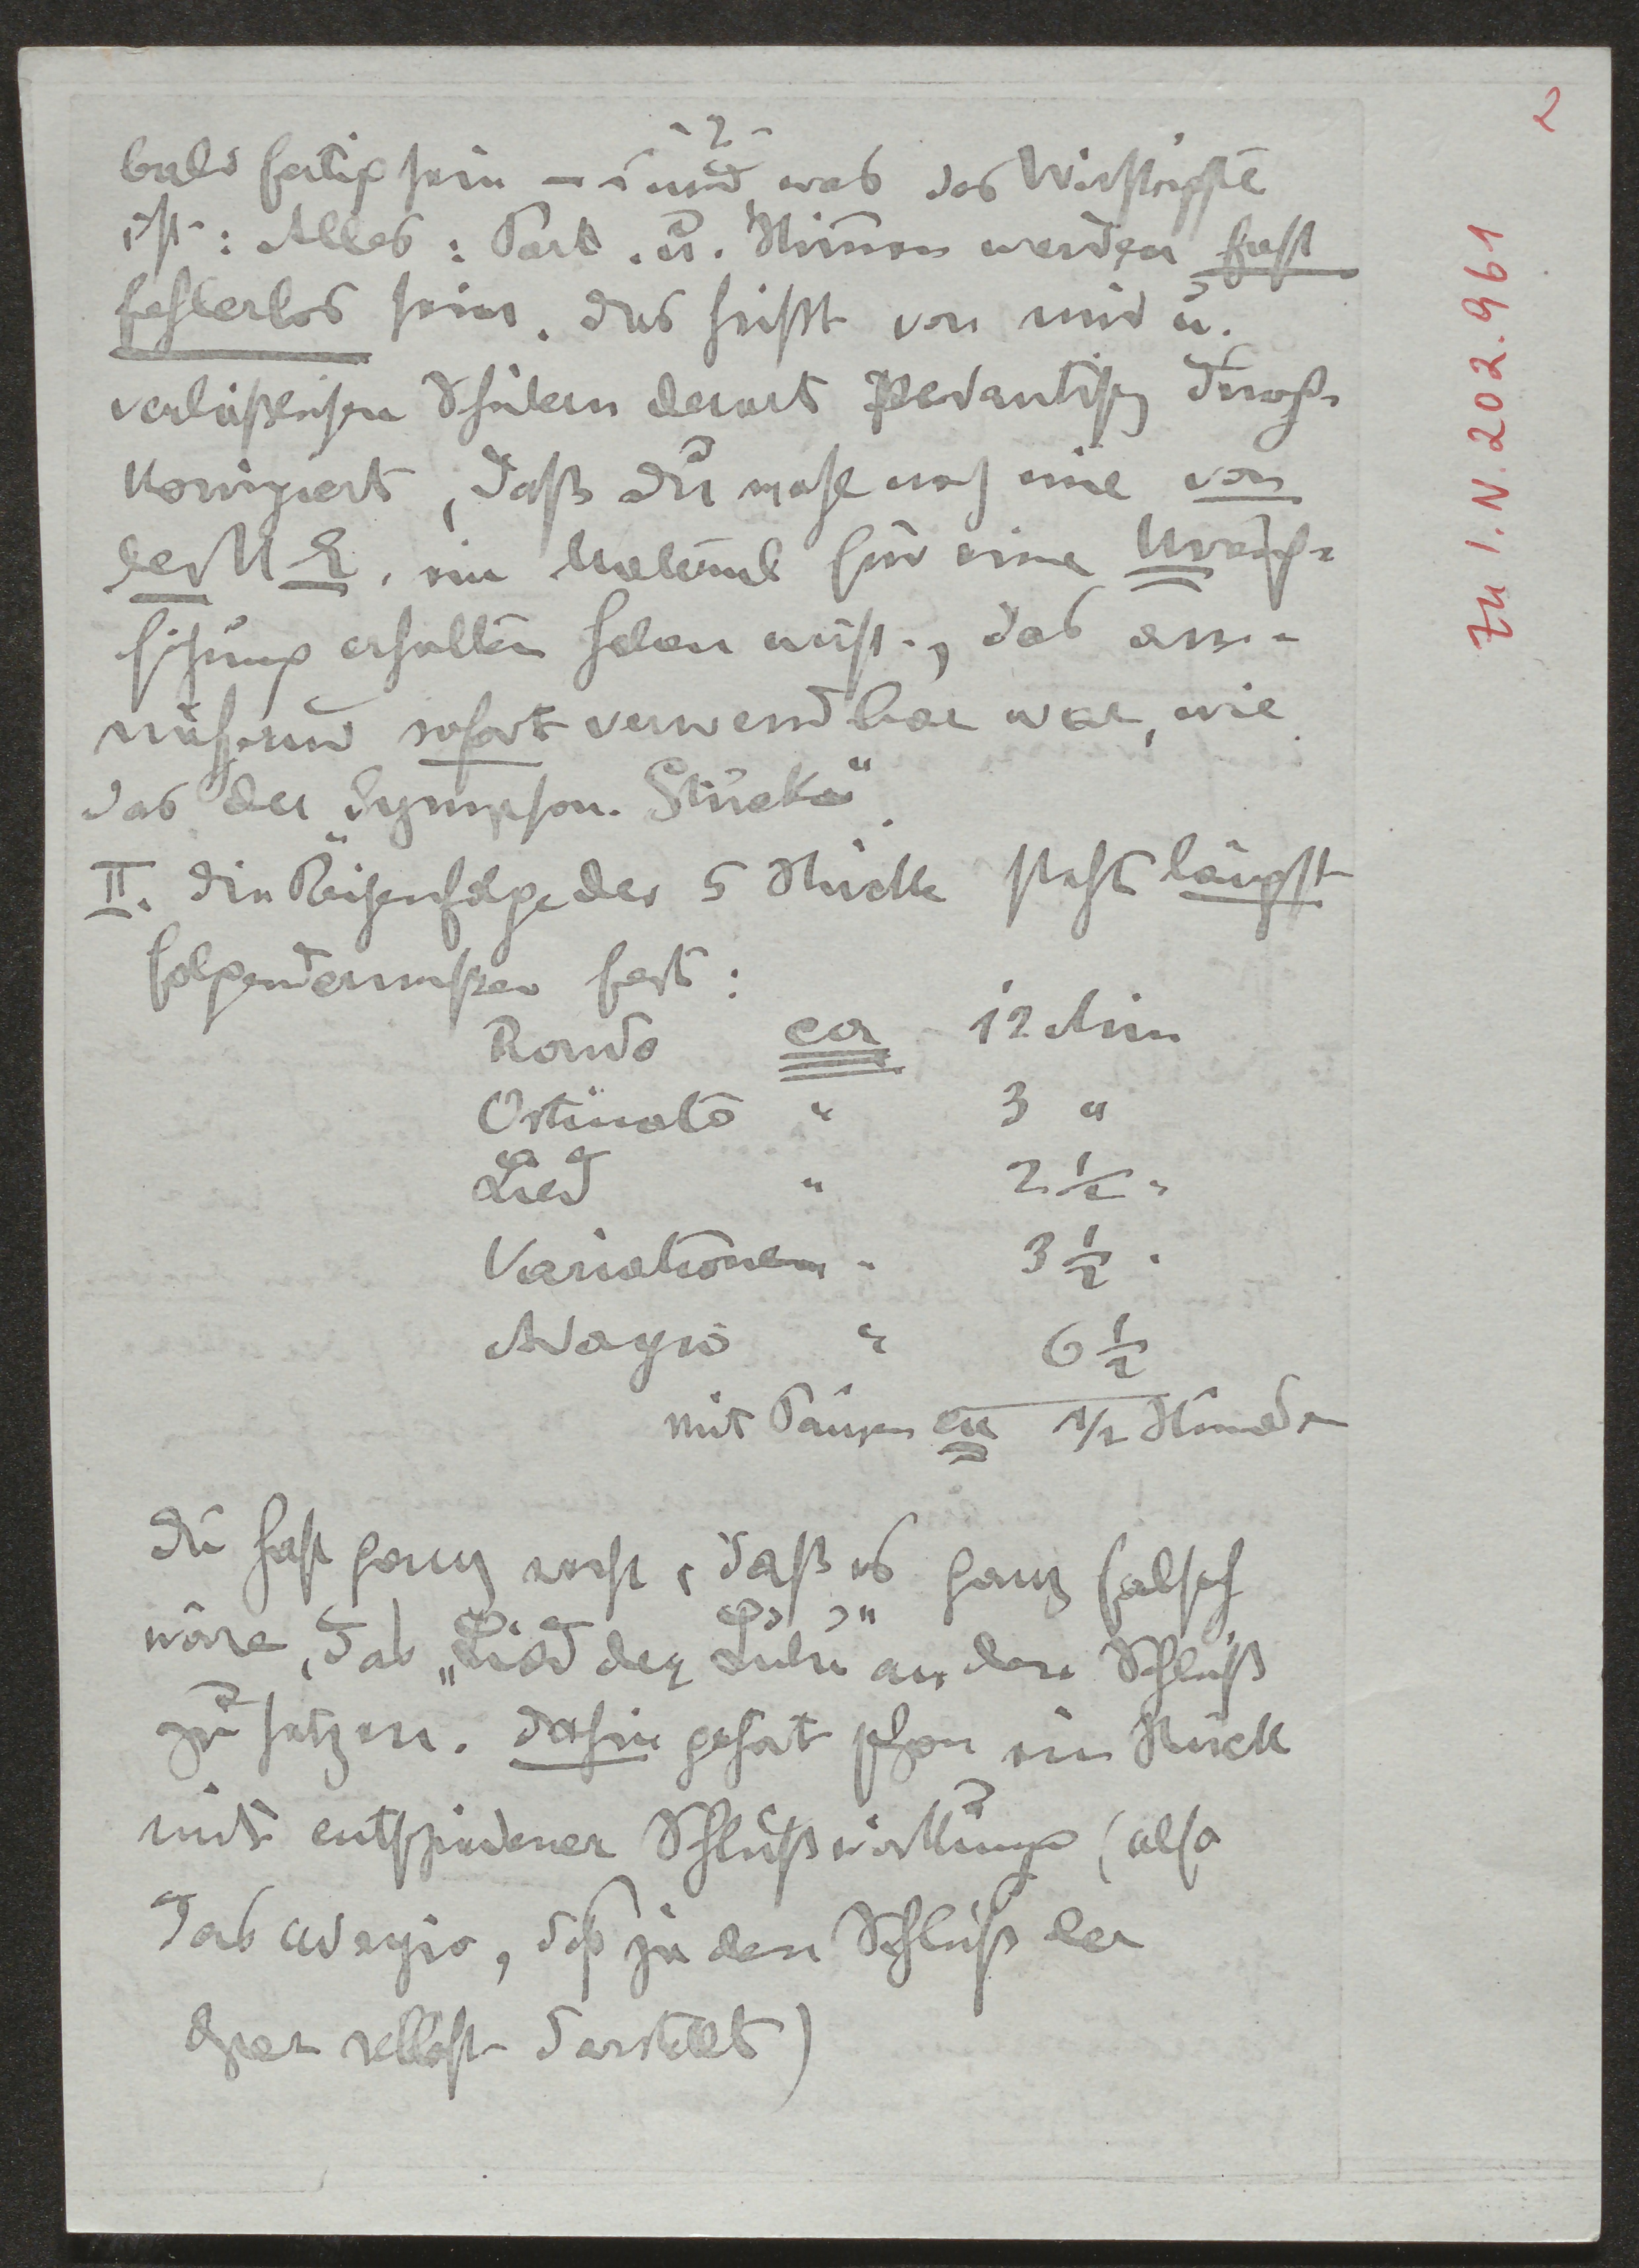 2
- 2 -
bald fertig sein — und was das Wichtigste
ist: Alles: Part. u. Stimen werden fast
fehlerlos sein. Das heißt von mir u.
verläßlichen Schülern derart pedantisch durch-
korrigiert, daß Du wohl noch nie von
der U E. ein Material für eine Urauf-
führung erhalten haben wirst, das an-
nähernd sofort verwendbar war, wie
das der „Symphon. Stücke“.
II. Die Reihenfolge der 5 Stücke steht längst
folgendermaßen fest:
Rondo ca 12 Min
Ostinato " 3 "
Lied " 2 1/2 "
Variationen " 3 1/2 "
Adagio " 6 1/2
mit Pausen ca 1/2 Stunde
Du hast ganz recht, daß es ganz falsch
wäre, das „Lied der Lulu“ an den Schluß
zu setzen. Dahin gehört schon ein Stück
mit entschiedener Schlußwirkung (also
das Adagio, das ja den Schluß der
Oper selbst darstellt)
zu I.N. 202.961